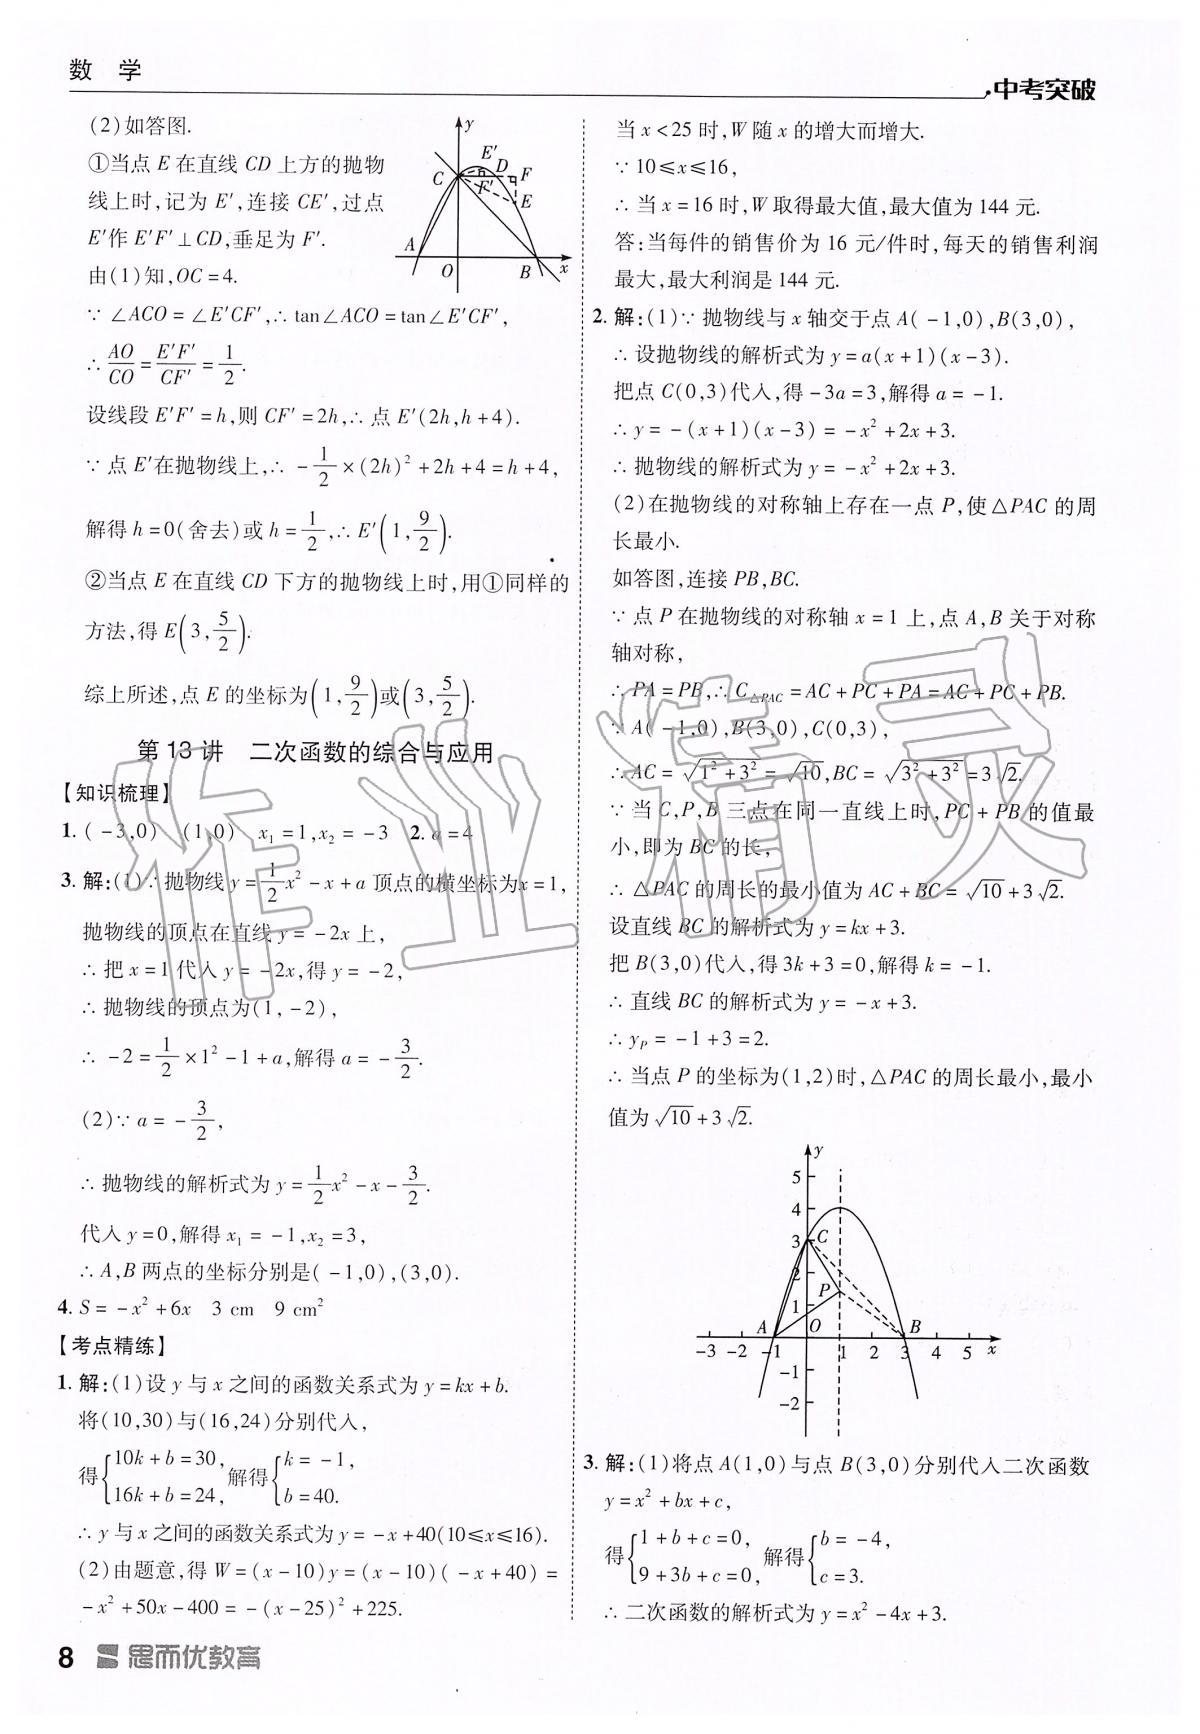 数 学
中考突破
(2)如答图.
①当点 E 在直线 CD 上方的抛物
线上时,记为 E′,连接 CE′,过点
E′作 E′F′⊥CD,垂足为 F′.
由(1)知,OC=4.
y
E′
C
D
F
F′
E
A
O
B
x
∵ ∠ACO=∠E′CF′,∴ tan∠ACO=tan∠E′CF′,
∴ AO/CO=E′F′/CF′=1/2.
设线段 E′F′=h,则 CF′=2h,∴ 点 E′(2h,h+4).
∵ 点 E′在抛物线上,∴ -1/2×(2h)²+2h+4=h+4,
解得 h=0(舍去)或 h=1/2,∴ E′(1,9/2).
②当点 E 在直线 CD 下方的抛物线上时,用①同样的
方法,得 E(3,5/2).
综上所述,点 E 的坐标为(1,9/2)或(3,5/2).
第 13 讲 二次函数的综合与应用
【知识梳理】
1. (-3,0) (1,0) x₁=1,x₂=-3 2. a=4
3. 解:(1)∵ 抛物线 y=1/2x²-x+a 顶点的横坐标为x=1,
抛物线的顶点在直线 y=-2x 上,
∴ 把 x=1 代入 y=-2x,得 y=-2,
∴ 抛物线的顶点为(1,-2),
∴ -2=1/2×1²-1+a,解得 a=-3/2.
(2)∵ a=-3/2,
∴ 抛物线的解析式为 y=1/2x²-x-3/2.
代入 y=0,解得 x₁=-1,x₂=3,
∴ A,B 两点的坐标分别是(-1,0),(3,0).
4. S=-x²+6x 3 cm 9 cm²
【考点精练】
1. 解:(1)设 y 与 x 之间的函数关系式为 y=kx+b.
将(10,30)与(16,24)分别代入,
得{10k+b=30, 16k+b=24, 解得{k=-1, b=40.
∴ y 与 x 之间的函数关系式为 y=-x+40(10≤x≤16).
(2)由题意,得 W=(x-10)y=(x-10)(-x+40)=
-x²+50x-400=-(x-25)²+225.
当 x<25 时,W 随 x 的增大而增大.
∵ 10≤x≤16,
∴ 当 x=16 时,W 取得最大值,最大值为 144 元.
答:当每件的销售价为 16 元/件时,每天的销售利润
最大,最大利润是 144 元.
2. 解:(1)∵ 抛物线与 x 轴交于点 A(-1,0),B(3,0),
∴ 设抛物线的解析式为 y=a(x+1)(x-3).
把点 C(0,3)代入,得 -3a=3,解得 a=-1.
∴ y=-(x+1)(x-3)=-x²+2x+3.
∴ 抛物线的解析式为 y=-x²+2x+3.
(2)在抛物线的对称轴上存在一点 P,使△PAC 的周
长最小.
如答图,连接 PB,BC.
∵ 点 P 在抛物线的对称轴 x=1 上,点 A,B 关于对称
轴对称,
∴ PA=PB,∴ C△PAC=AC+PC+PA=AC+PC+PB.
∵ A(-1,0),B(3,0),C(0,3),
∴ AC=√(1²+3²)=√10,BC=√(3²+3²)=3√2.
∵ 当 C,P,B 三点在同一直线上时,PC+PB 的值最
小,即为 BC 的长,
∴ △PAC 的周长的最小值为 AC+BC=√10+3√2.
设直线 BC 的解析式为 y=kx+3.
把 B(3,0)代入,得 3k+3=0,解得 k=-1.
∴ 直线 BC 的解析式为 y=-x+3.
∴ yP=-1+3=2.
∴ 当点 P 的坐标为(1,2)时,△PAC 的周长最小,最小
值为√10+3√2.
y
5
4
3 C
2
1 P
A O B
-3 -2 -1 1 2 3 4 5 x
-1
-2
3. 解:(1)将点 A(1,0)与点 B(3,0)分别代入二次函数
y=x²+bx+c,
得{1+b+c=0, 9+3b+c=0, 解得{b=-4, c=3.
∴ 二次函数的解析式为 y=x²-4x+3.
8 思而优教育
作业精灵